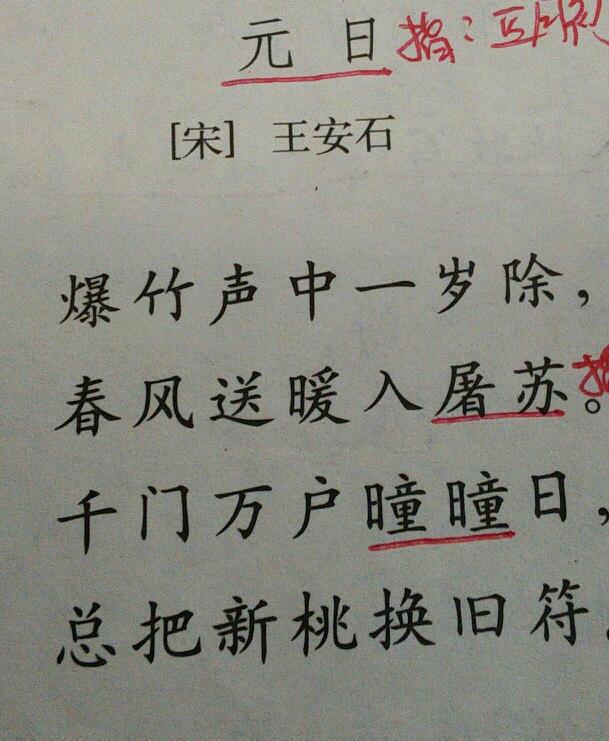 元日 指:
[宋] 王安石
爆竹声中一岁除,
春风送暖入屠苏。
千门万户曈曈日,
总把新桃换旧符